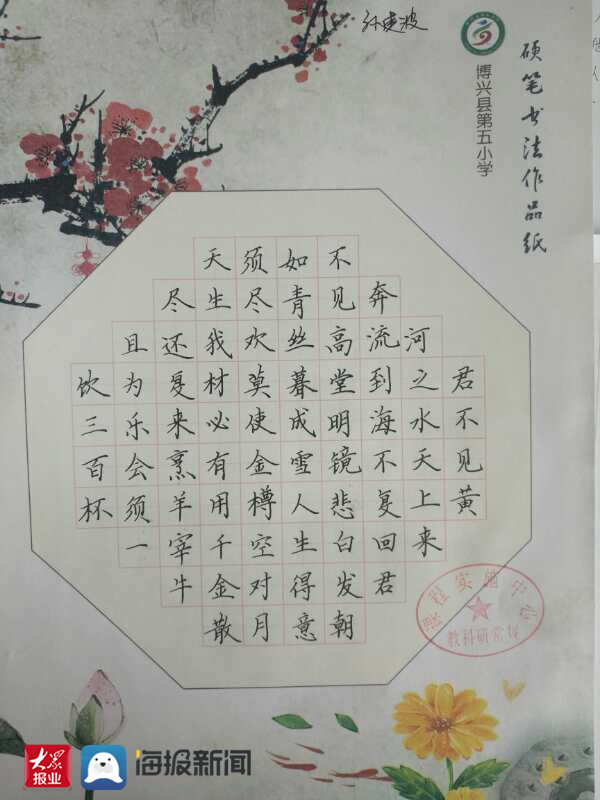 硬笔书法作品纸
博兴县第五小学
君不见黄
河之水天上来
奔流到海不复回君
不见高堂明镜悲白发朝
如青丝暮成雪人生得意
须尽欢莫使金樽空对月
天生我材必有用千金散
尽还复来烹羊宰牛
且为乐会须一
饮三百杯
课程实施中心
大众报业
海报新闻